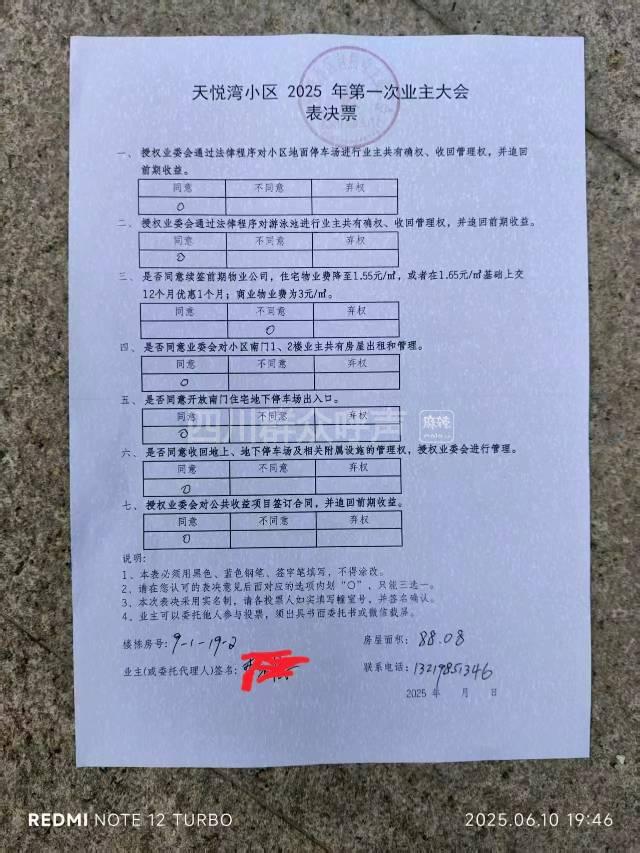 天悦湾小区 2025 年第一次业主大会
表决票
一、授权业委会通过法律程序对小区地面停车场进行业主共有确权、收回管理权，并追回
前期收益。
同意 不同意 弃权
O
二、授权业委会通过法律程序对游泳池进行业主共有确权、收回管理权，并追回前期收益。
同意 不同意 弃权
O
三、是否同意续签前期物业公司，住宅物业费降至1.55元/㎡，或者在1.65元/㎡基础上交
12个月优惠1个月；商业物业费为3元/㎡。
同意 不同意 弃权
O
四、是否同意业委会对小区南门1、2楼业主共有房屋出租和管理。
同意 不同意 弃权
O
五、是否同意开放南门住宅地下停车场出入口。
同意 不同意 弃权
O
四川群众呼声 麻辣
六、是否同意收回地上、地下停车场及相关附属设施的管理权，授权业委会进行管理。
同意 不同意 弃权
O
七、授权业委会对公共收益项目签订合同，并追回前期收益。
同意 不同意 弃权
O
说明：
1、本表必须用黑色、蓝色钢笔、签字笔填写，不得涂改。
2、请在您认可的表决意见后面对应的选项内划“O”，只能三选一。
3、本次表决采用实名制，请各投票人如实填写幢室号，并签名确认。
4、业主可以委托他人参与投票，须出具书面委托书或微信截屏。
楼栋房号：9-1-19-2 房屋面积：88.08
业主(或委托代理人)签名： 联系电话：13219851346
2025 年 月 日
REDMI NOTE 12 TURBO 2025.06.10 19:46